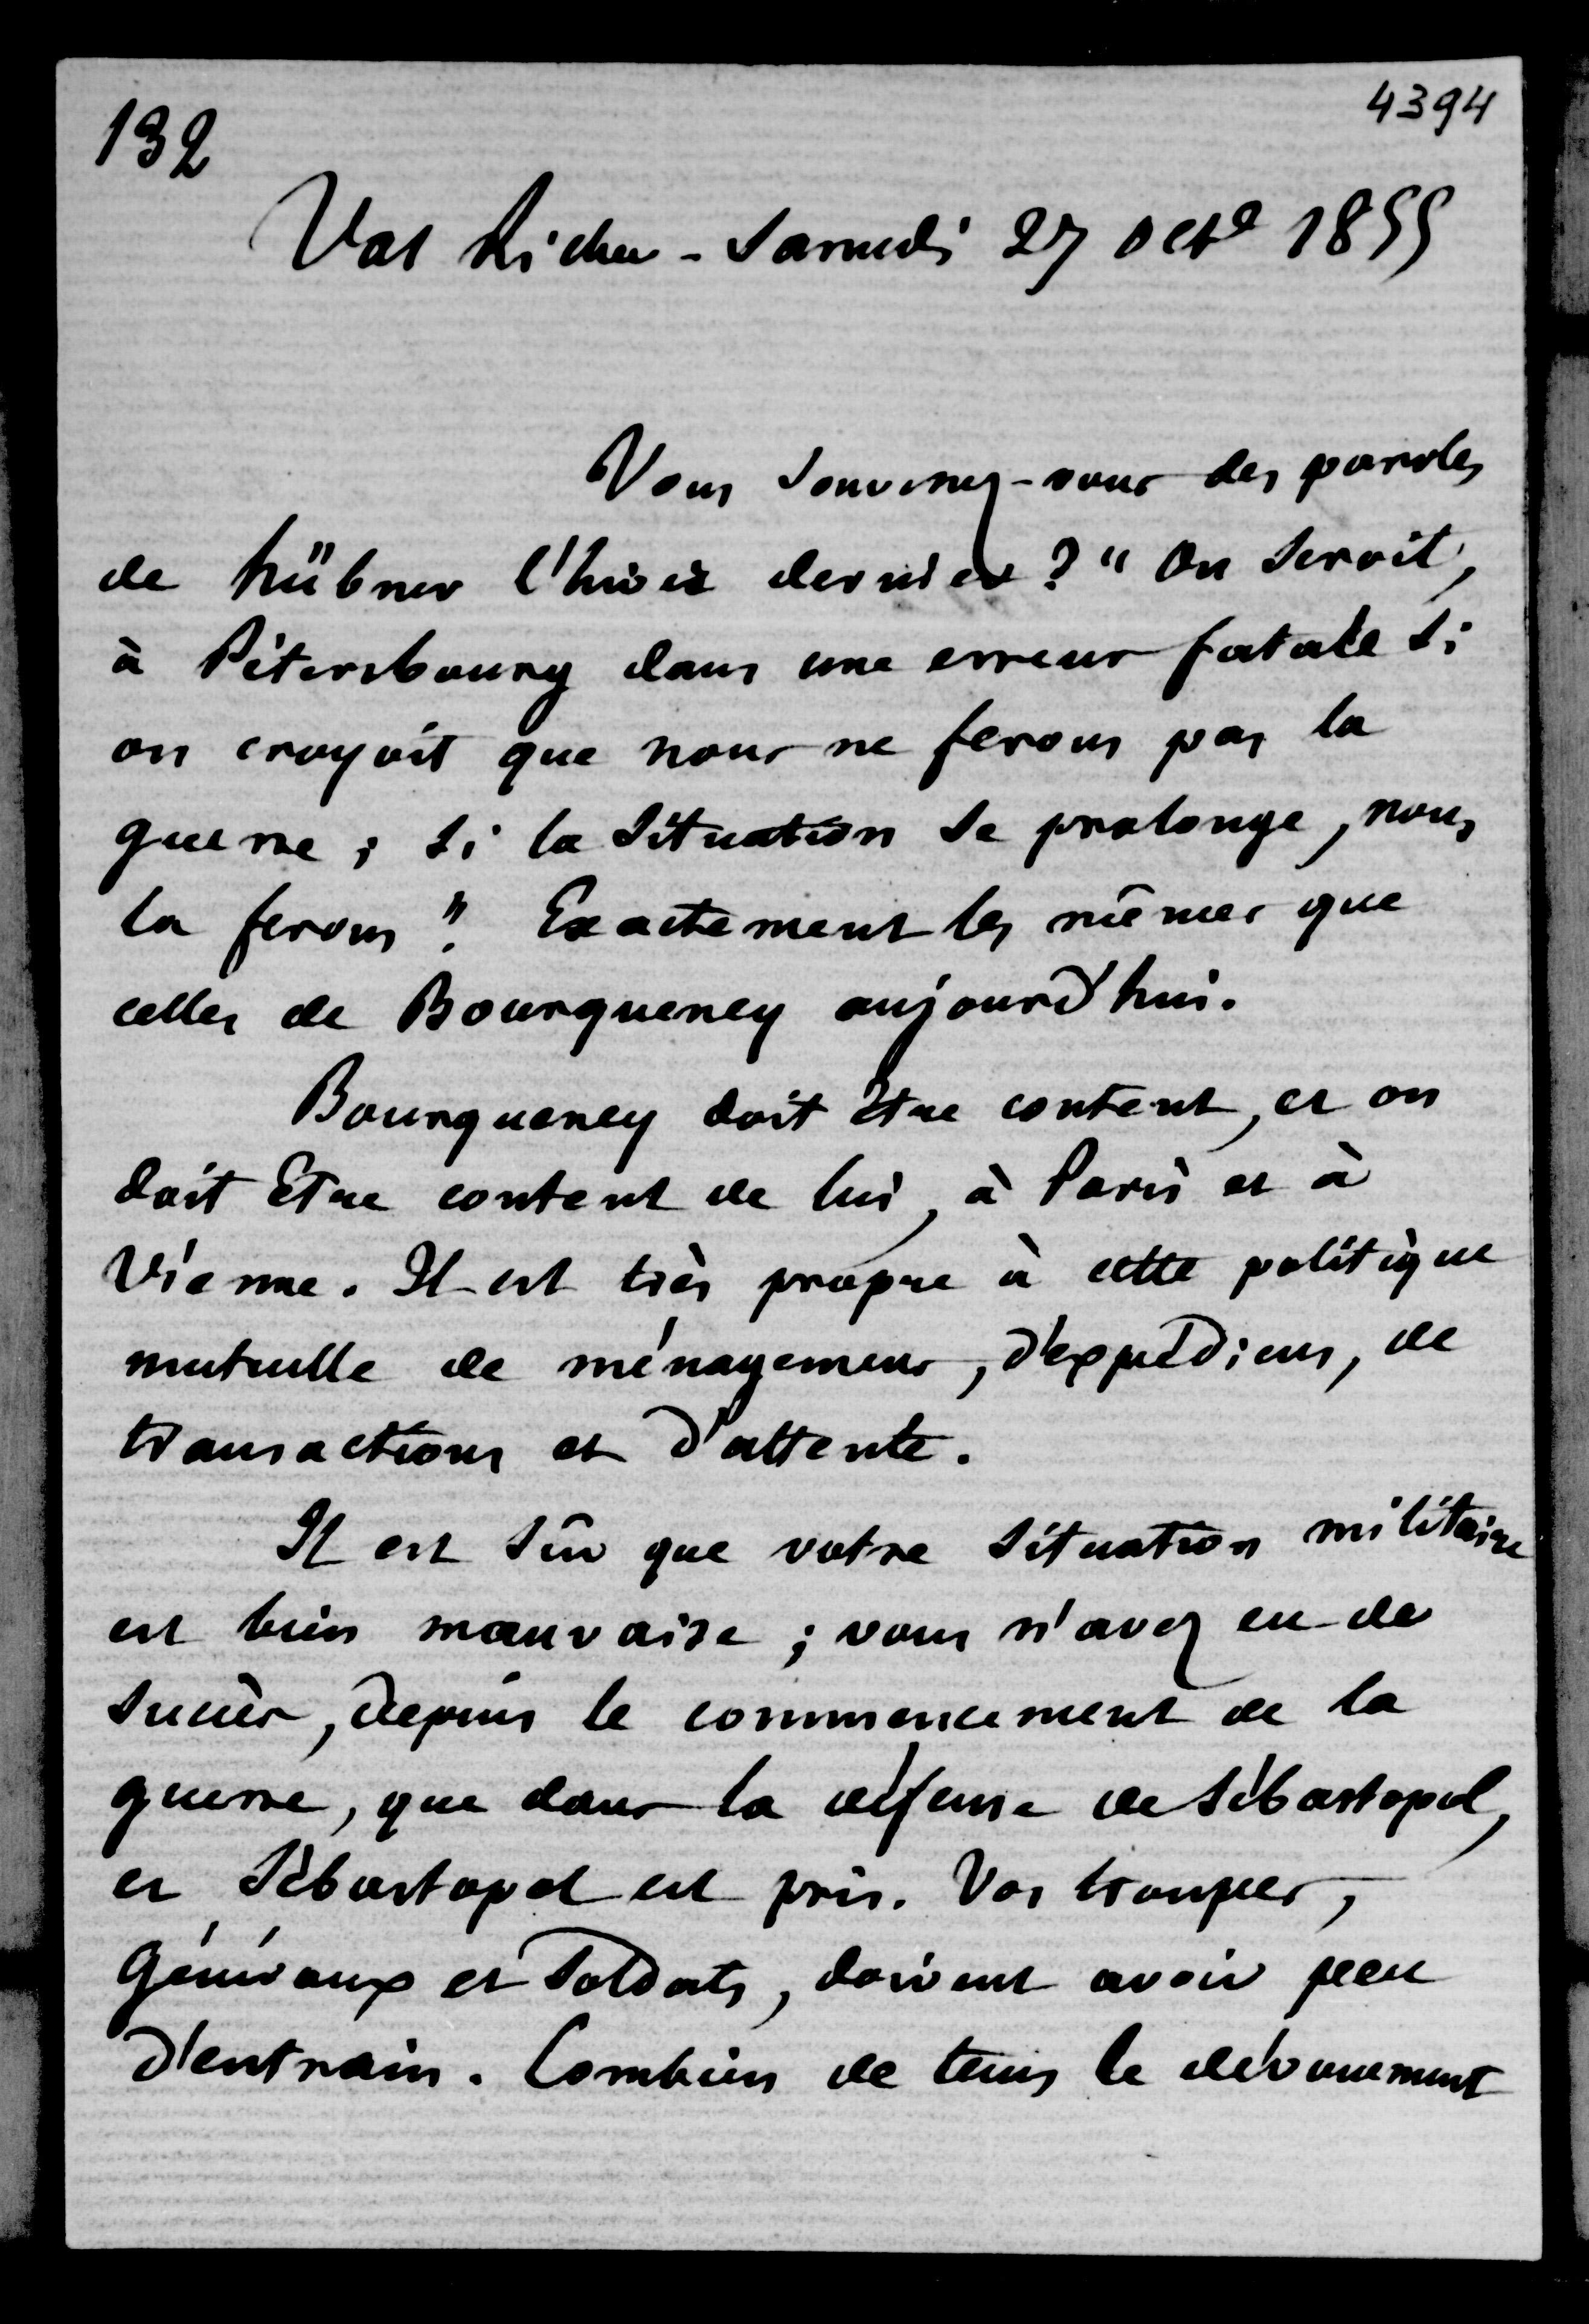 132
4394
Val Richer - Samedi 27 Octe 1855
Vous souvenez-vous des paroles
de Hübner l'hiver dernier ? " On seroit,
à Pétersbourg dans une erreur fatale si
on croyoit que nous ne ferons pas la
guerre ; si la situation se prolonge, nous
la ferons ". Exactement les mêmes que
celles de Bourqueney aujourd'hui.
Bourqueney doit être content, et on
doit être content de lui, à Paris et à
Vienne. Il est très propre à cette politique
mutuelle de ménagemens, d'expédiens, de
transactions et d'attente.
Il est sûr que votre situation militaire
est bien mauvaise ; vous n'avez eu de
succès, depuis le commencement de la
guerre, que dans la défense de Sébastopol,
et Sébastopol est pris. Vos troupes,
généraux et soldats, doivent avoir peu
d'entrain. Combien de tems le dévouement